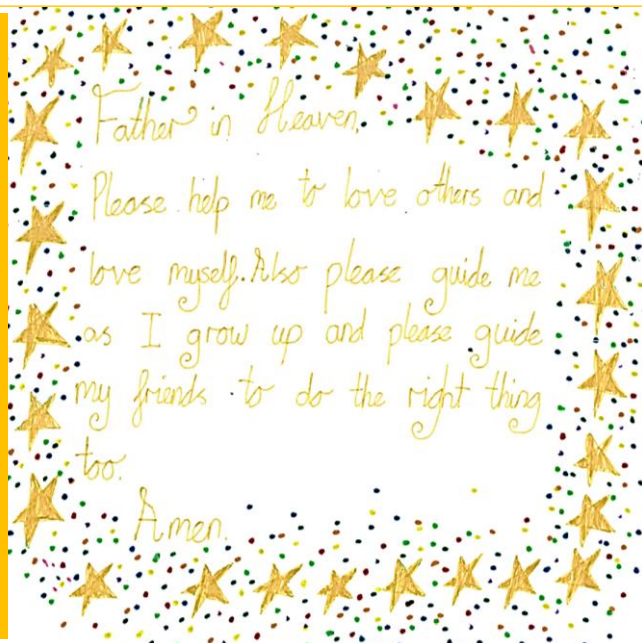 Father in Heaven,
Please help me to love others and
love myself. Also please guide me
as I grow up and please guide
my friends to do the right thing
too.
Amen.